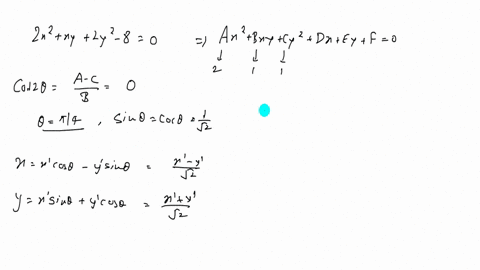 2x² + xy + 2y² - 8 = 0 ⇒ Ax² + Bxy + Cy² + Dx + Ey + F = 0
↓ ↓ ↓
2 1 1
Cot2θ = \frac{A-C}{B} = 0
θ = π/4 , Sinθ = Cosθ = \frac{1}{√2}
x = x'cosθ - y'sinθ = \frac{x'-y'}{√2}
y = x'sinθ + y'cosθ = \frac{x'+y'}{√2}